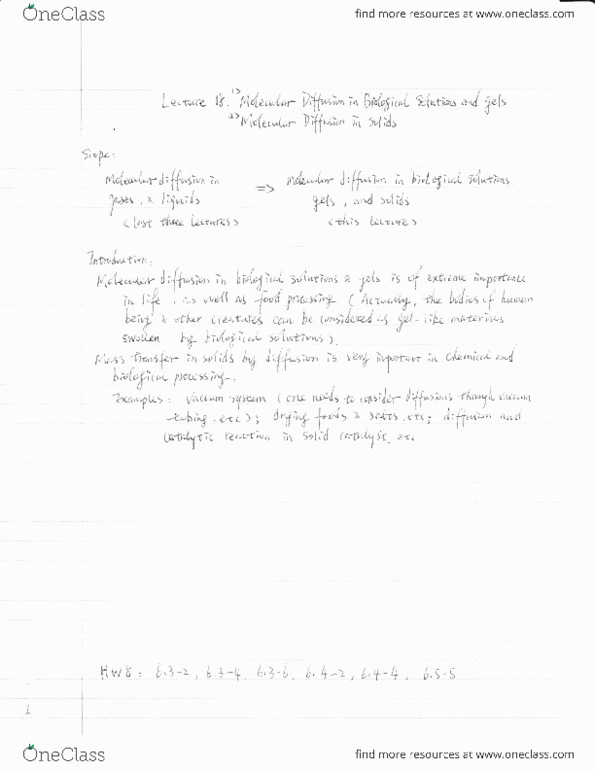 OneClass
find more resources at www.oneclass.com
Lecture 18. 1) Molecular Diffusion in Biological Solutions and gels
2) Molecular Diffusion in solids
Scope:
Molecular diffusion in => Molecular diffusion in biological solutions,
gases, & liquids gels, and solids
<last three lectures> <this lecture>
Introduction:
Molecular diffusion in biological solutions & gels is of extreme importance
in life, as well as food processing (Actually, the bodies of human
being & other creatures can be considered as gel-like materials
swollen by biological solutions).
Mass transfer in solids by diffusion is very important in chemical and
biological processing.
Examples: vacuum system (one needs to consider diffusions through vacuum
tubing, etc); drying foods & etc; diffusion and
catalytic reaction in solid catalyst, etc
HW8: 6.3-2, 6.3-4, 6.3-6, 6.4-2, 6.4-4, 6.5-5
OneClass
find more resources at www.oneclass.com